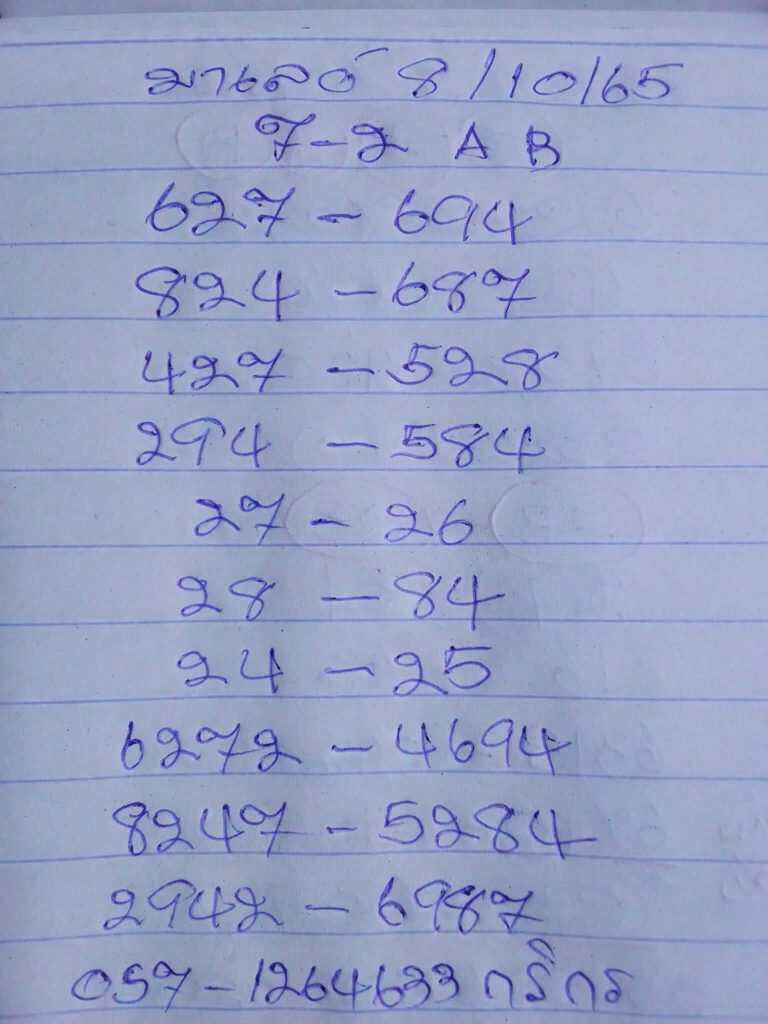 มาเลย์ 8/10/65
7-2 A B
627 - 694
824 - 687
427 - 528
294 - 584
27 - 26
28 - 84
24 - 25
6272 - 4694
8247 - 5284
2942 - 6987
057-1264633 กริกร